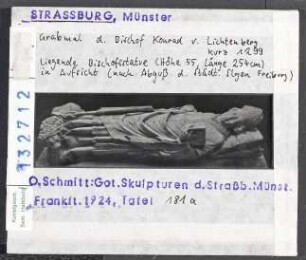 STRASSBURG, Münster
Grabmal d. Bischof Konrad v. Lichtenberg
kurz 1299
Liegende Bischofsstatue (Höhe 55, Länge 254 cm)
in Aufsicht (nach Abguß d. städt. Slgen Freiburg)
132712
O.Schmitt:Got.Skulpturen d.Straßb.Münst.
Frankft.1924, Tafel 181a